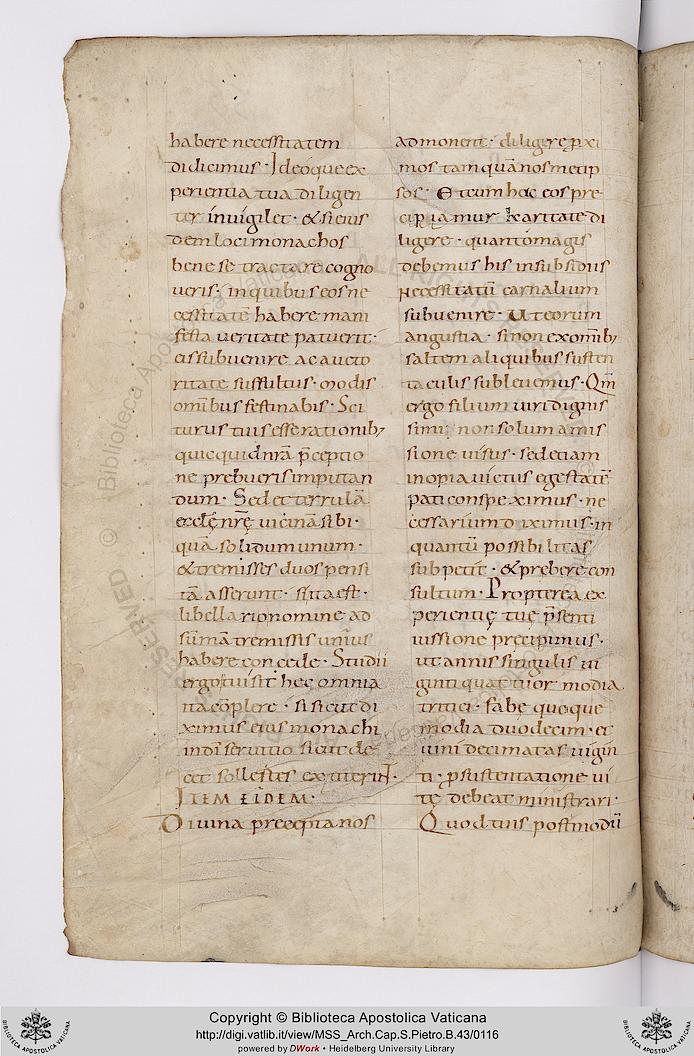 habere necessitatem
didicimus · Ideoque ex
perientia tua diligen
ter invigilet · & si eius
dem loci monachos
bene se tractare cogno
veris · in quibus eos ne
cessitatē habere mani
festa veritate patuerit ·
eis subvenire ac aucto
ritate suffultus · modis
omībus festinabis · Sci
turus tuis esse rationib;
quicquid nrā p̄ceptio
ne prebueris imputan
dum · Sed et terrulā
eccłę nrę vicinā sibi ·
quā solidum unum ·
& tremisses duos pensi
tā asserunt · si ita est ·
libellario nomine ad
sūmā tremissis unius
habere concede · Studii
ergo tui sit hęc omnia
ita cōplere · si sicut di
ximus eius monachi
indī servitio sicut de
cet sollestes extiterint ·
ITEM EIDEM ·
Divina precepta nos
admonent · diligere ꝓxi
mos tamquā nosmetip
sos · Et cum hęc eos pre
cipiamur karitate di
ligere · quantomagis
debemus his in subsidiis
necessitatū carnalium
subvenire · Ut eorum
angustia · si non ex omīb;
saltem aliquibus susten
taculis sublevemus · Qm̄
ergo filium viri dignis
simi · non solum amis
sione visus · sed etiam
inopia victus egestatē
pati conspeximus · ne
cessarium duximus · in
quantū possibilitas
subpetit · & prebere con
sultum · Propterea ex
perientię tuę p̄senti
iussione precipimus ·
ut annis singulis vi
ginti quattuor modia
tritici · fabę quoque
modia duodecim · et
vini decimatas vigin
ti · ꝓ sustentatione vi
tę debeat ministrari ·
Quod tuis postmodū
© Biblioteca Apostolica Vaticana
ALL RIGHTS RESERVED
Copyright © Biblioteca Apostolica Vaticana
http://digi.vatlib.it/view/MSS_Arch.Cap.S.Pietro.B.43/0116
powered by DWork • Heidelberg University Library